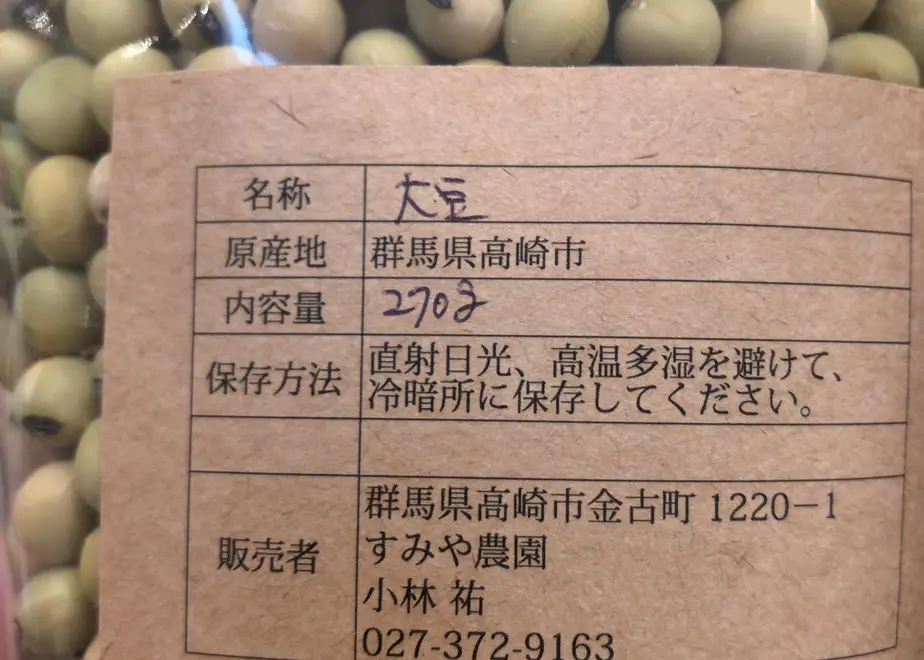 名称 大豆
原産地 群馬県高崎市
内容量 270g
保存方法 直射日光、高温多湿を避けて、
冷暗所に保存してください。
販売者 群馬県高崎市金古町 1220-1
すみや農園
小林 祐
027-372-9163